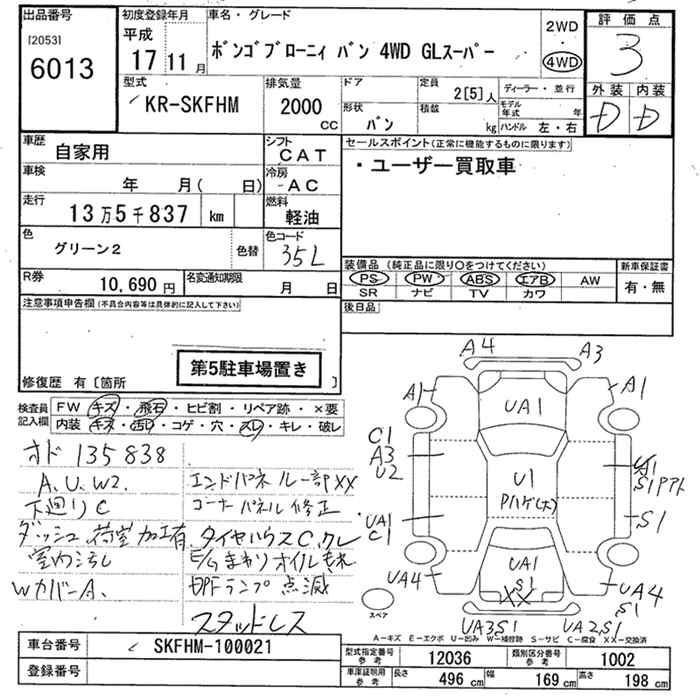 出品番号
[2053]
6013
初度登録年月
平成
17 11月
車名・グレード
ボンゴブローニィ バン 4WD GLスーパー
2WD
4WD
評価点
3
外装 内装
D D
型式
KR-SKFHM
排気量
2000
CC
ドア
形状
バン
定員
2[5]人
積載
kg
ディーラー・並行
モデル年式 年
ハンドル 左・右
車歴
自家用
シフト
CAT
車検
年 月( 日)
冷房
AC
走行
13万5千837 km
燃料
軽油
色
グリーン2
色替
色コード
35L
R券
10,690円
名変通知期限
月 日
セールスポイント(正常に機能するものに限ります)
・ユーザー買取車
装備品 (純正品に限り〇をつけてください)
PS PW ABS エアB AW
SR ナビ TV カワ
新車保証書
有・無
後日品
注意事項申告欄(不具合内容等は具体的に記入して下さい)
第5駐車場置き
修復歴 有〔箇所 〕
検査員記入欄
FW キズ・飛石・ヒビ割・リペア跡・×要
内装 キズ・汚れ・コゲ・穴・スレ・キレ・破レ
オド 135838
A.U.W2.
下廻りC
ダッシュ 荷室 加工有
室内汚し
WカバーA.
エンドパネル一部XX
コーナーパネル修正
タイヤハウスC、クレ
E/Gまわりオイルもれ
DPFランプ点滅
スタッドレス
A4 A3
A1 A1
UA1
C1
A3
U2
U1
Pハゲ(大)
A1
S1アト
UA1
C1
S1
UA4
UA1
S1
XX
UA4
S1
スペア
UA3S1 UA2S1
A-キズ E-エクボ U-凹み W-補修跡 S-サビ C-腐食 XX-交換済
車台番号
SKFHM-100021
登録番号
型式指定番号 参考
12036
類別区分番号 参考
1002
車庫証明用 参考
長さ 496 cm
幅 169 cm
高さ 198 cm